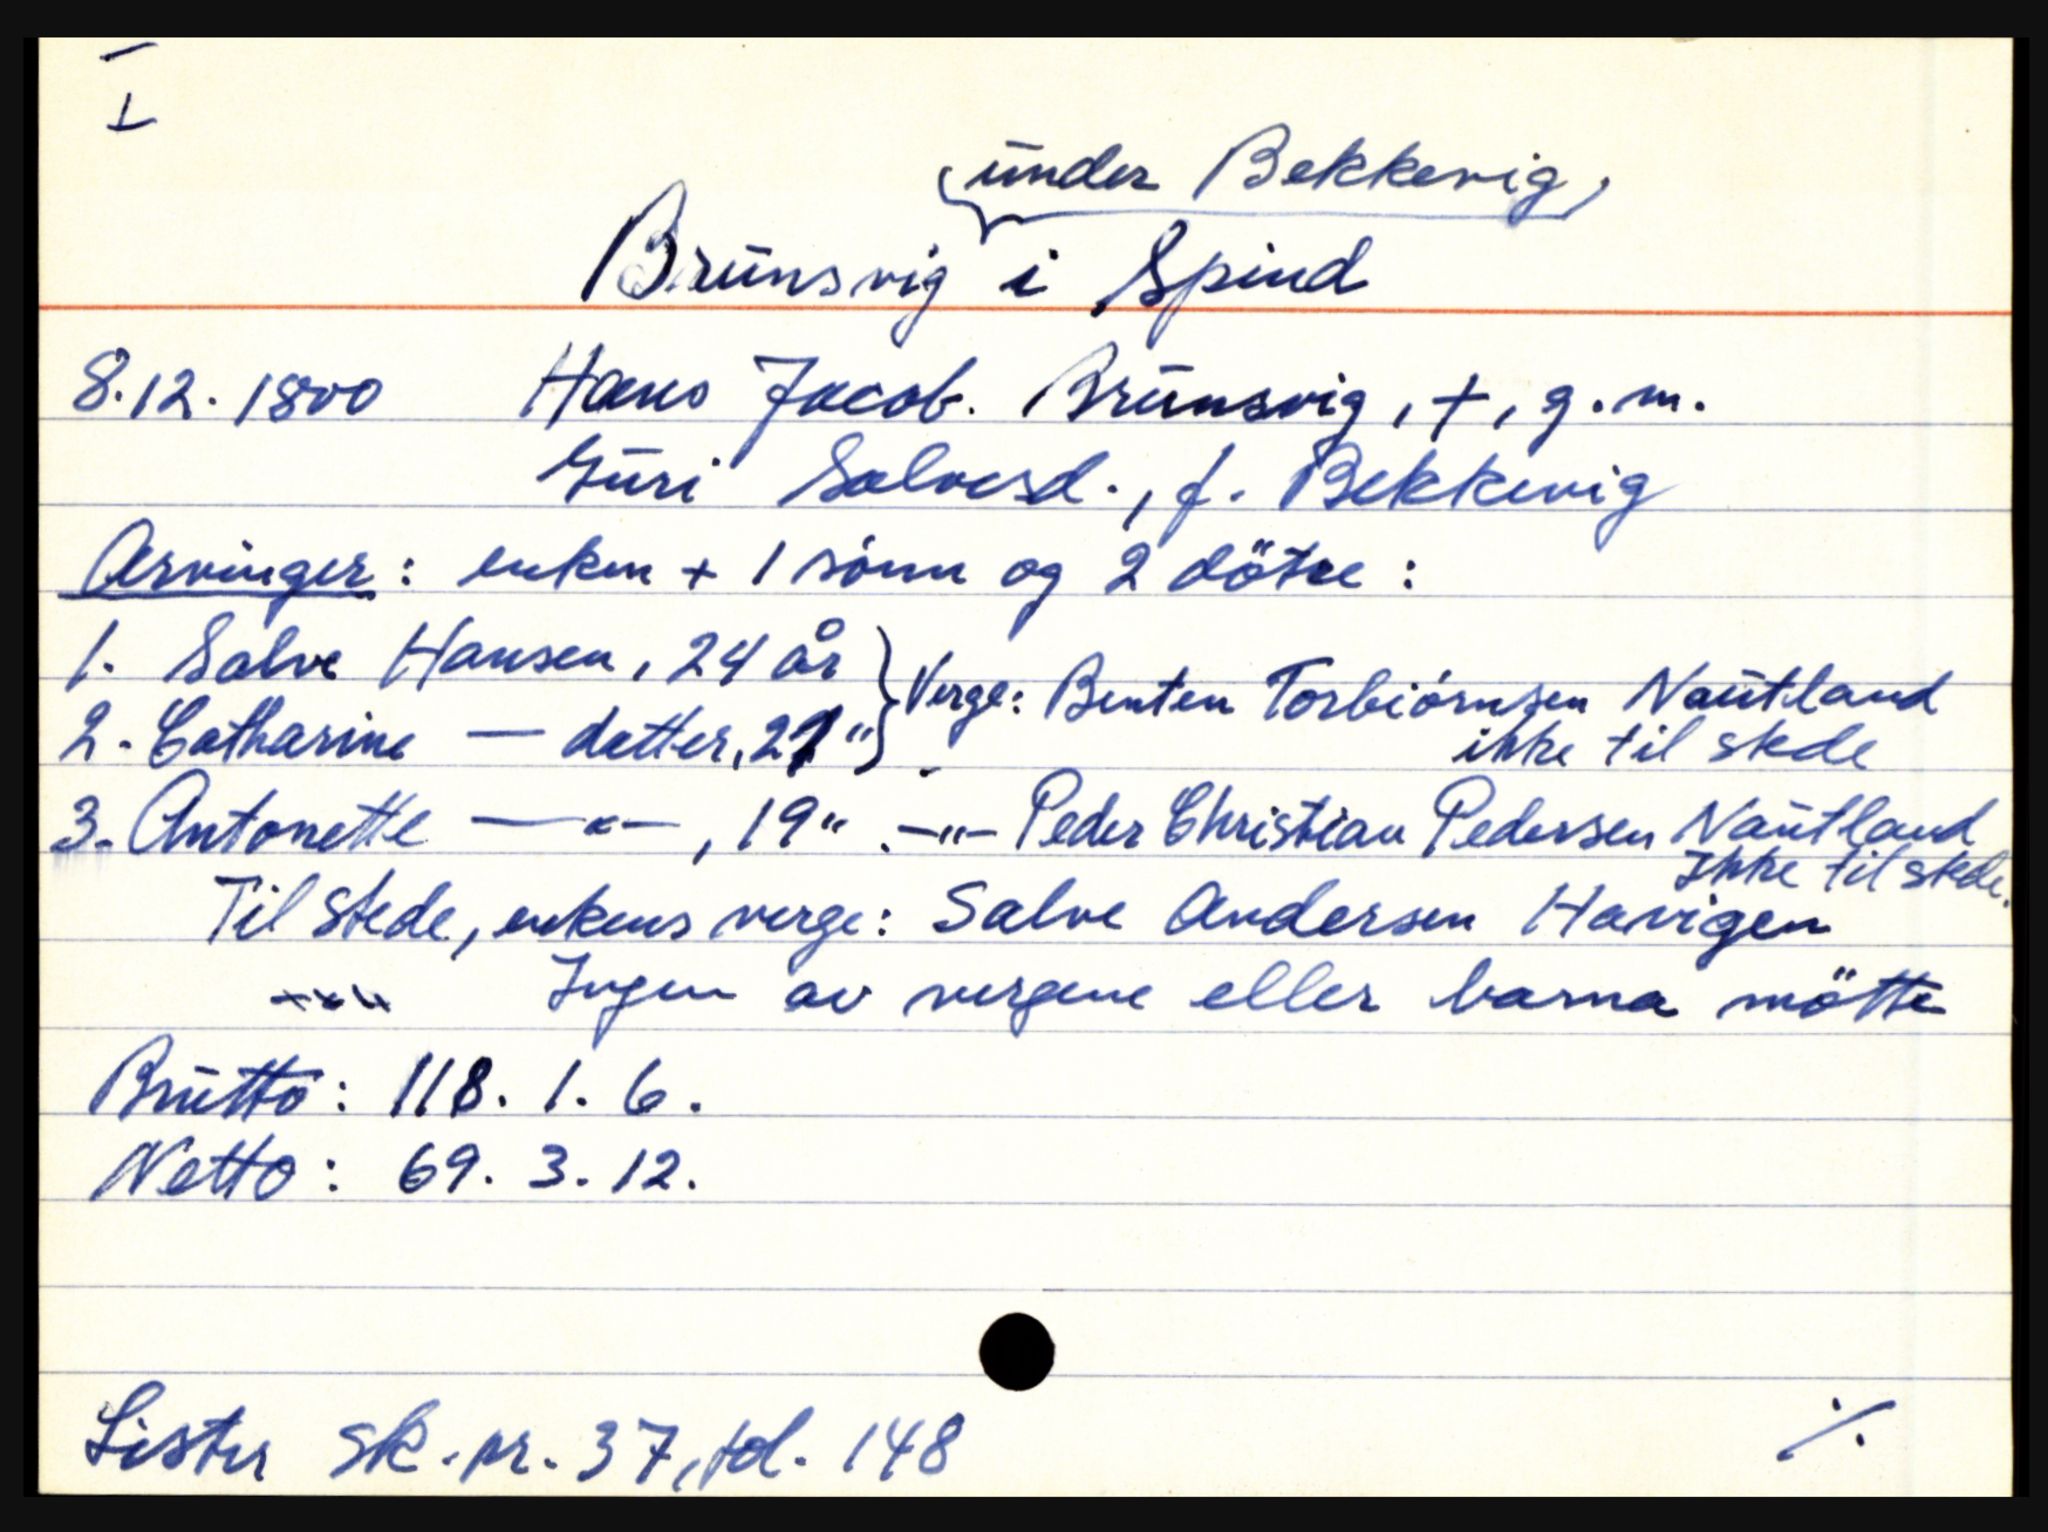 I
under Bekkevig
Brunsvig i Spind
8.12.1800 Hans Jacob. Brunsvig, +, g.m.
Guri Salvesd., f. Bekkevig
Arvinger: enken + 1 sønn og 2 døtre:
1. Salve Hansen, 24 år } Verge: Benten Torbiørnsen Nautland
2. Catharine — datter, 21 " } ikke til stede
3. Antonette —"—, 19 " . —"— Peder Christian Pedersen Nautland
Ikke til stede.
Til stede, enkens verge: Salve Andersen Havigen
Ingen av vergene eller barna møtte
Brutto: 118. 1. 6.
Netto: 69. 3. 12.
Lister sk.pr. 37, fol. 148
./.